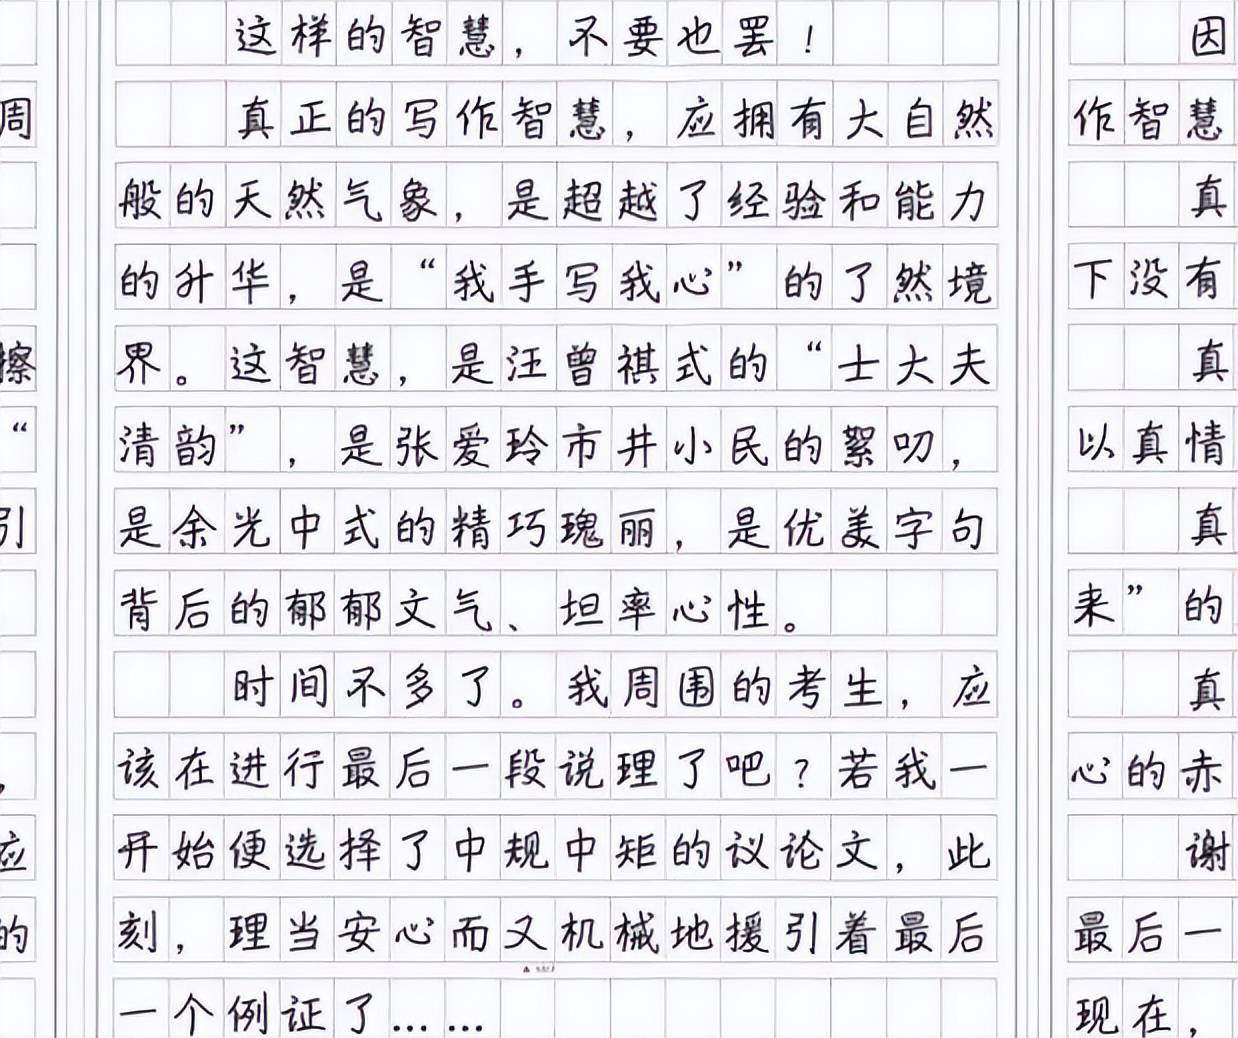 周
擦
“
引
，
应
的
这样的智慧，不要也罢！
真正的写作智慧，应拥有大自然
般的天然气象，是超越了经验和能力
的升华，是“我手写我心”的了然境
界。这智慧，是汪曾祺式的“士大夫
清韵”，是张爱玲市井小民的絮叨，
是余光中式的精巧瑰丽，是优美字句
背后的郁郁文气、坦率心性。
时间不多了。我周围的考生，应
该在进行最后一段说理了吧？若我一
开始便选择了中规中矩的议论文，此
刻，理当安心而又机械地援引着最后
一个例证了……
因
作智慧
真
下没有
真
以真情
真
来”的
真
心的赤
谢
最后一
现在，